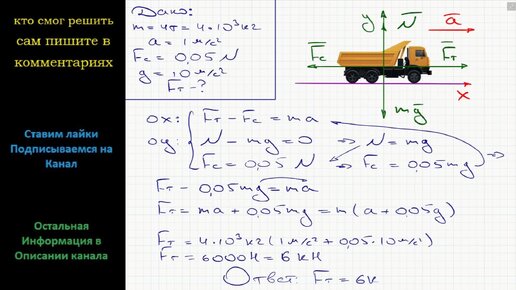 кто смог решить
сам пишите в
комментариях
Ставим лайки
Подписываемся на
Канал
Остальная
Информация в
Описании канала
Дано:
m=4т=4·10³кг
a=1м/с²
Fc=0,05N
g=10м/с²
Fт-?
y N a
Fc Fт
x
mg
ox: Fт-Fc=ma
oy: N-mg=0 ⇒ N=mg
Fc=0,05N ⇒ Fc=0,05mg
Fт-0,05mg=ma
Fт=ma+0,05mg=m(a+0,05g)
Fт=4·10³кг(1м/с²+0,05·10м/с²)
Fт=6000Н=6кН
Ответ: Fт=6к